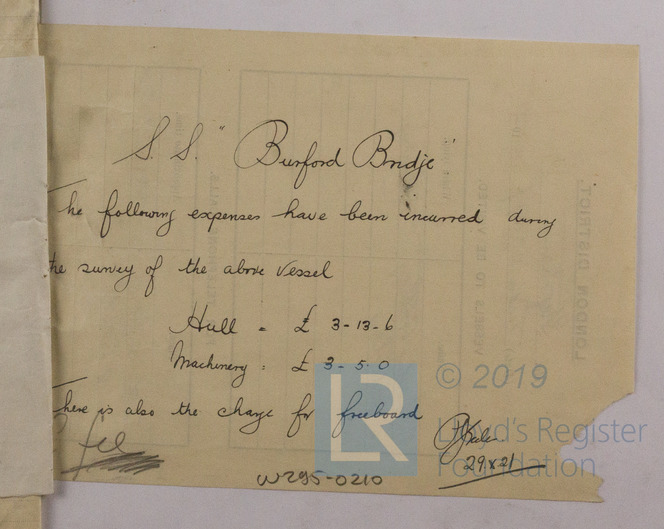 S. S. "Burford Bridge"
The following expenses have been incurred during
the survey of the above vessel
Hull = £ 3-13-6
Machinery = £ 3-5-0
There is also the charge for freeboard
fee
29 X 21
W295-0210
LONDON DISTRICT
VESSELS TO BE
© 2019
LR
Lloyd's Register
Foundation